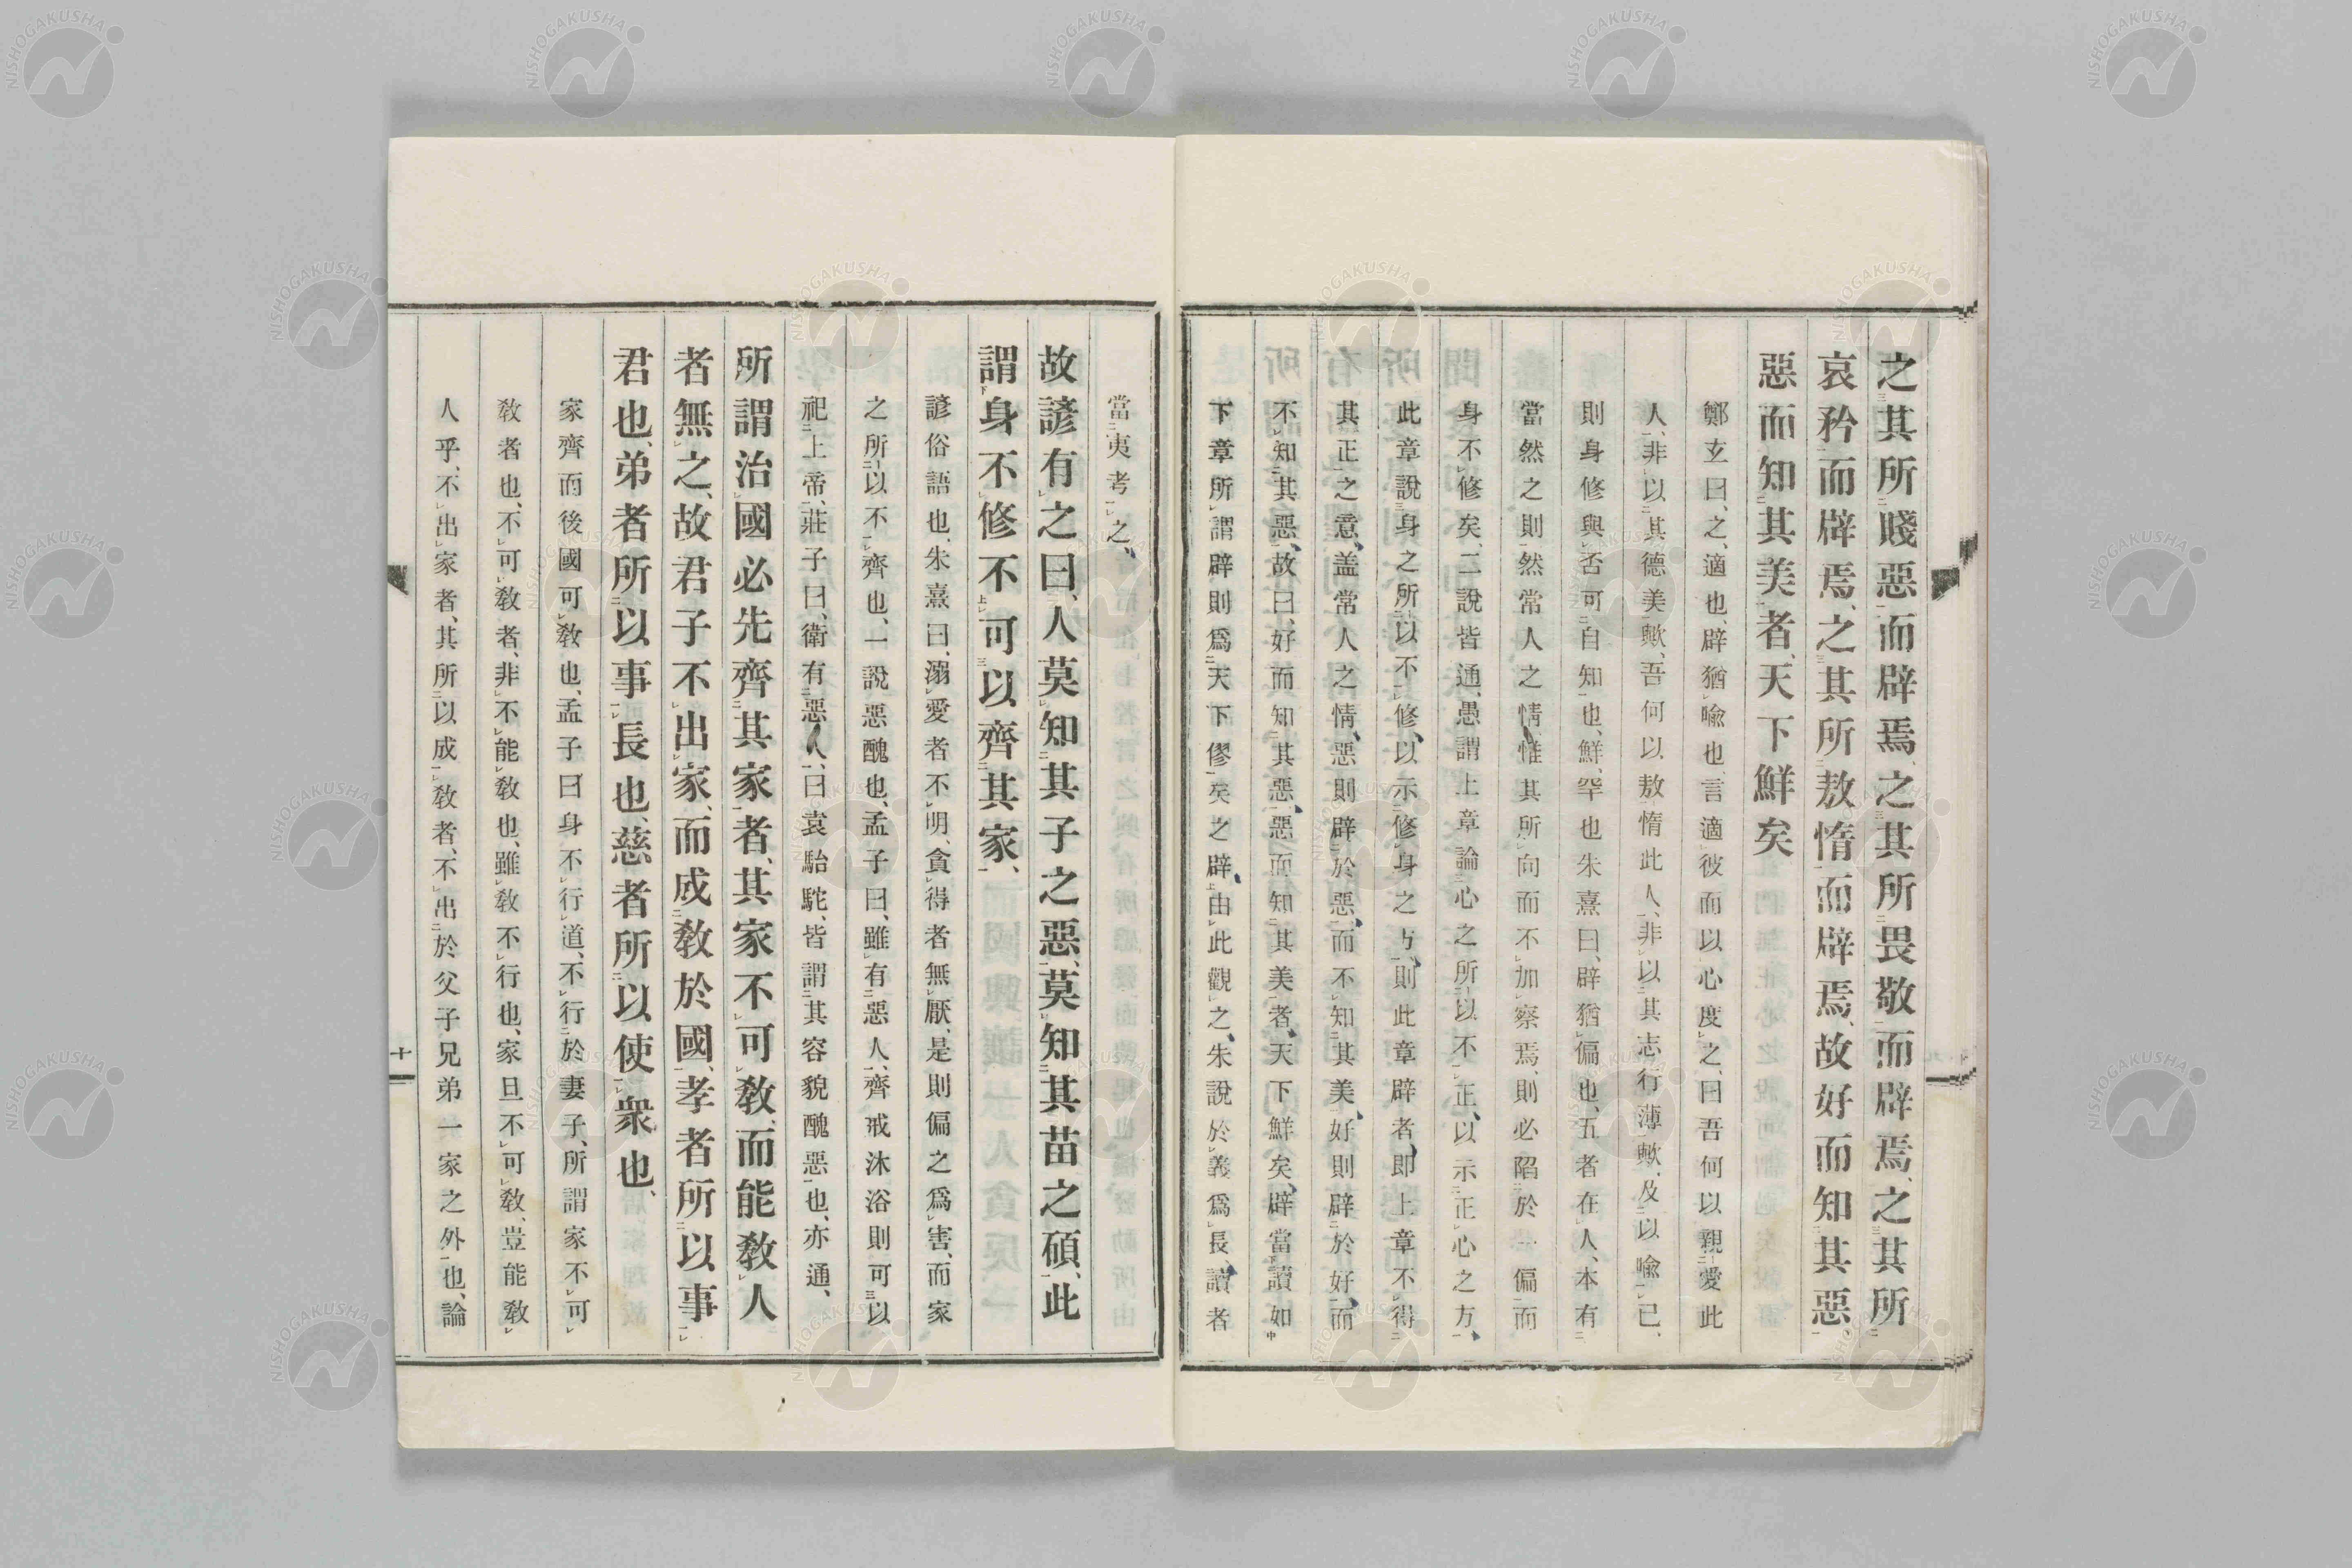 之其所賤惡而辟焉、之其所畏敬而辟焉、之其所
哀矜而辟焉、之其所敖惰而辟焉、故好而知其惡、
惡而知其美者、天下鮮矣
鄭玄曰、之、適也、辟猶喩也、言適彼而以心度之、曰吾何以親愛此
人、非以其德美歟、吾何以敖惰此人、非以其志行薄歟、及以喩己、
則身修與否可自知也、鮮、罕也朱熹曰、辟猶偏也、五者在人、本有
當然之則、然常人之情、惟其所向而不加察焉、則必陷於一偏而
身不修矣、二說皆通、愚謂上章論心之所以不正、以示正心之方、
此章說身之所以不修、以示修身之方、則此章辟者、卽上章不得
其正之意、盖常人之情、惡則辟於惡、而不知其美、好則辟於好、而
不知其惡、故曰、好而知其惡、惡而知其美者、天下鮮矣、辟當讀如
下章所謂辟則爲天下僇矣之辟、由此觀之、朱說於義爲長、讀者
當夷考之、
故諺有之曰、人莫知其子之惡、莫知其苗之碩、此
謂身不修不可以齊其家、
諺俗語也、朱熹曰、溺愛者不明、貪得者無厭、是則偏之爲害、而家
之所以不齊也、一說惡醜也、孟子曰、雖有惡人、齊戒沐浴則可以
祀上帝、莊子曰、衛有惡人、曰哀駘駝、皆謂其容貌醜惡也、亦通、
所謂治國必先齊其家者、其家不可敎、而能敎人
者無之、故君子不出家、而成敎於國、孝者所以事
君也、弟者所以事長也、慈者所以使衆也、
家齊而後國可敎也、孟子曰身不行道、不行於妻子、所謂家不可
敎者也、不可敎者、非不能敎也、雖敎不行也、家且不可敎、豈能敎
人乎、不出家者、其所以成敎者、不出於父子兄弟一家之外也、論
十一
NISHOGAKUSHA